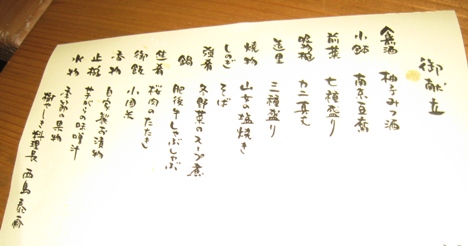 御献立
食前酒 柚子みつ酒
小鉢 南京豆腐
前菜 七種盛り
吸物椀 カニ真丈
造里 三種盛り
焼物 山女の塩焼き
しのぎ そば
強肴 冬野菜のスープ煮
鍋 肥後牛しゃぶしゃぶ
進肴 桜肉のたたき
御飯 小国米
香物 自家製お漬物
止椀 すがりの味噌汁
水物 季節の果物
料理長 西島